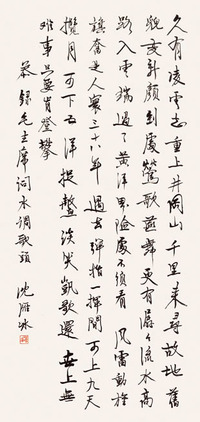 久有凌雲志重上井岡山千里来尋故地舊
貌变新顔到處鶯歌燕舞更有潺々流水高
路入雲端過了黄洋界險處不須看 風雷動旌
旗奮是人寰三十八年過去彈指一揮間可上九天
攬月可下五洋捉鱉談笑凱歌還世上無
难事只要肯登攀
恭録毛主席詞水調歌頭 沈雁冰